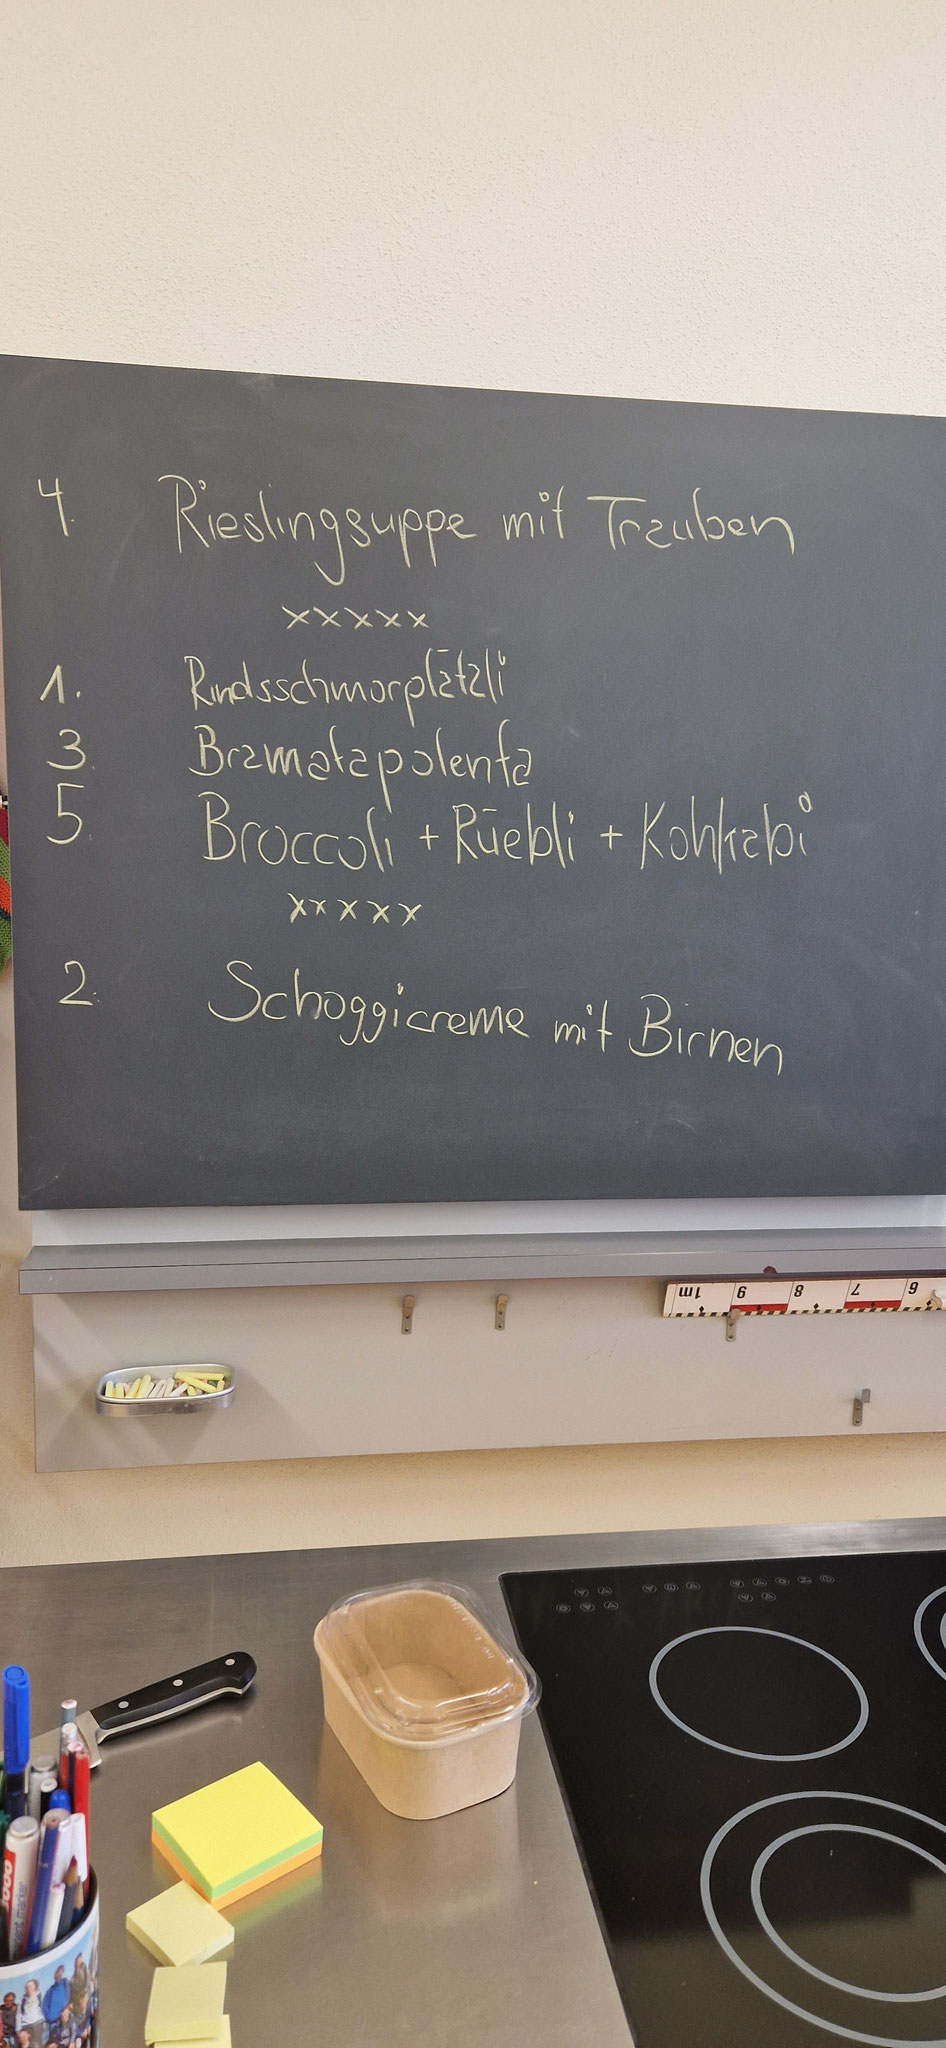 4. Rieslingsuppe mit Trauben
xxxxx
1. Rindsschmorplätzli
3. Bramatapolenta
5. Broccoli + Rüebli + Kohlrabi
xxxxx
2. Schoggicreme mit Birnen
1m 9 8 7 6